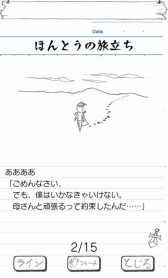 Date
ほんとうの旅立ち
ああああ
「ごめんなさい、
でも、僕はいかなきゃいけない。
母さんと頑張るって約束したんだ……」
2/15
ライン
とじる